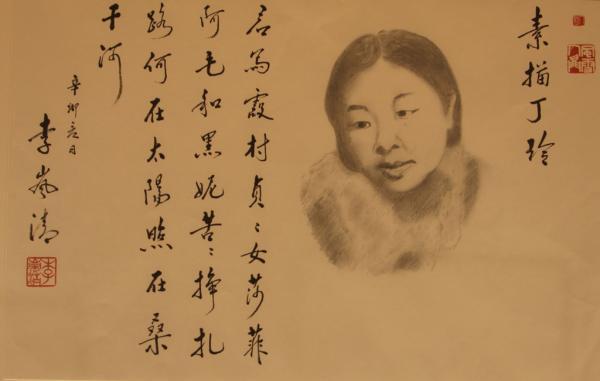 素描丁玲
君寫霞村貞〻女莎菲
阿毛和黑妮苦〻掙扎
路何在太陽照在桑
干河
辛卯日
李嵐清